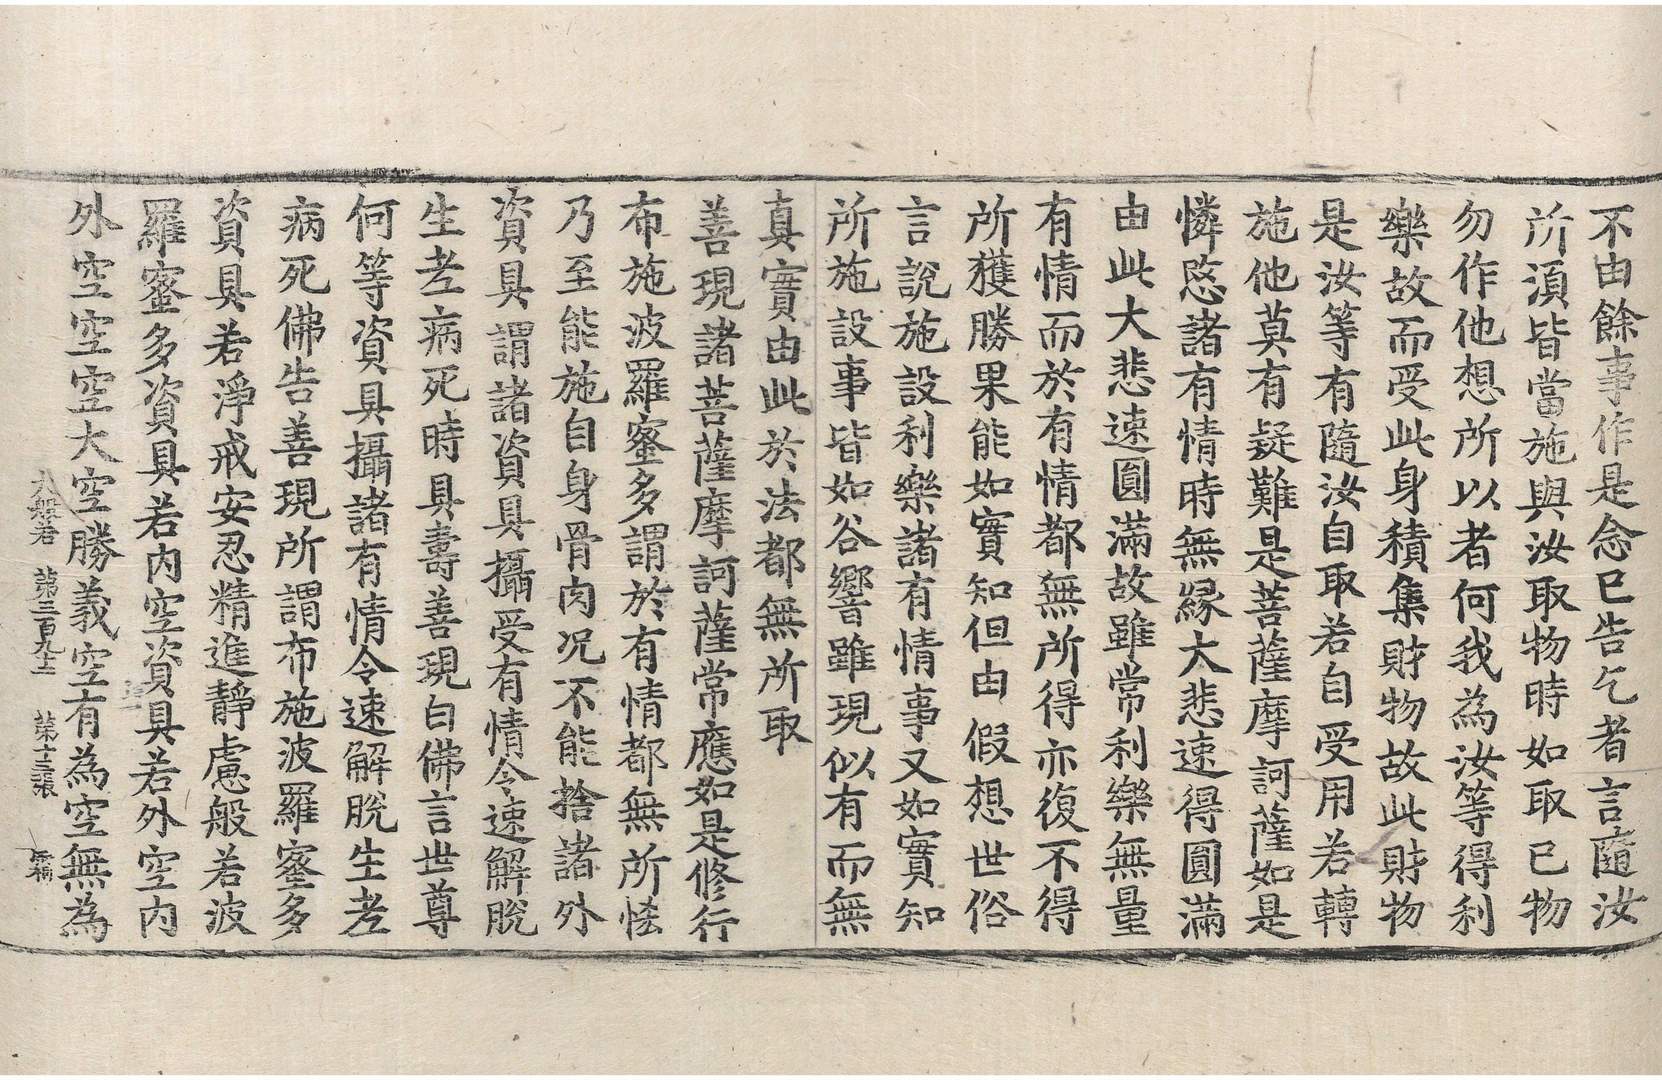 不由餘事作是念已告乞者言隨汝
所須皆當施與汝取物時如取己物
勿作他想所以者何我為汝等得利
樂故而受此身積集財物故此財物
是汝等有隨汝自取若自受用若轉
施他莫有疑難是菩薩摩訶薩如是
憐愍諸有情時無緣大悲速得圓滿
由此大悲速圓滿故雖常利樂無量
有情而於有情都無所得亦復不得
所獲勝果能如實知但由假想世俗
言說施設利樂諸有情事又如實知
所施設事皆如谷響雖現似有而無
真實由此於法都無所取
善現諸菩薩摩訶薩常應如是修行
布施波羅蜜多謂於有情都無所恡
乃至能施自身骨肉况不能捨諸外
資具謂諸資具攝受有情令速解脫
生老病死時具壽善現白佛言世尊
何等資具攝諸有情令速解脫生老
病死佛告善現所謂布施波羅蜜多
資具若淨戒安忍精進靜慮般若波
羅蜜多資具若內空資具若外空內
外空空空大空勝義空有為空無為
大般若 第三百九十二 第十三張